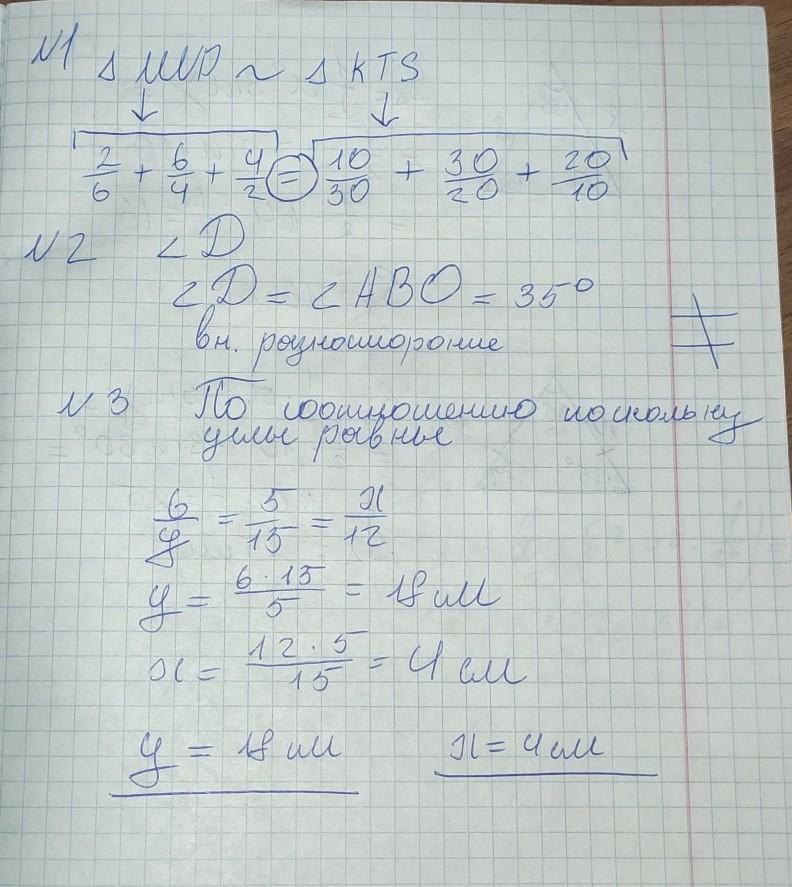 N1 Δ MNP ~ Δ KTS
↓ ↓
2/6 + 6/4 + 4/2 = 10/30 + 30/20 + 20/10
N2 ∠D
∠D = ∠ABO = 35°
вн. разностороние
N3 По соотношению поскольку
углы равные
6/y = 5/15 = x/12
y = 6·15/5 = 18 см
x = 12·5/15 = 4 см
y = 18 см x = 4 см